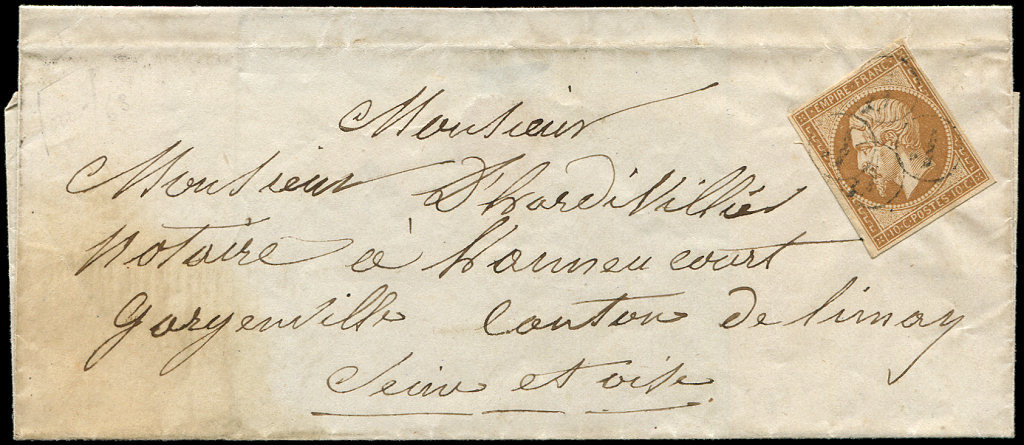 Monsieur
Monsieur D'hardivillié
notaire à hanneucourt
gargenville Canton de limay
Seine et oise
EMPIRE FRANC.
10·C·POSTES·10·C.